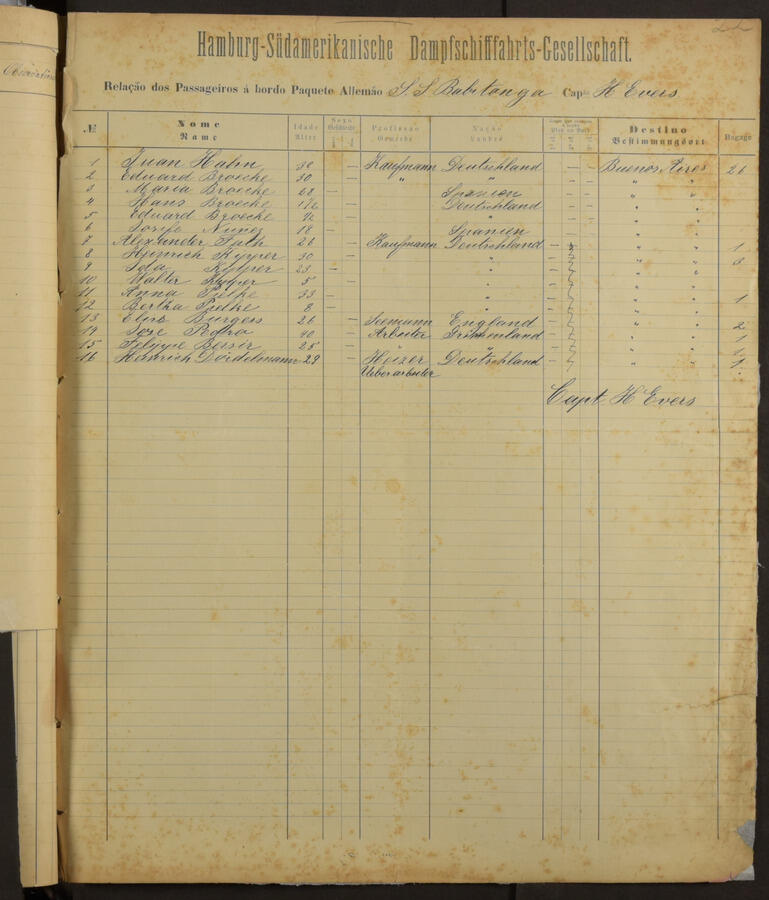 Hamburg-Südamerikanische Dampfschifffahrts-Gesellschaft.
Relação dos Passageiros á bordo Paquete Allemão S S Babitonga Cap. H Evers
№ Nome Name Idade Alter Sexo Geschlecht Profissão Gewerbe Nação Destino Bestimmungsort Bagage
1 Juan Hahn Kaufmann Deutschland Buenos Aires 26
2 Eduard Broecke 30 " " " "
3 Maria Broecke 28 Spanien " "
4 Hans Broecke Deutschland " "
5 Eduard Broecke " " "
6 Nunez 18 Spanien " "
7 Alexander Fath 26 Kaufmann Deutschland " " 1
8 Heinrich Kypper 30 " " " 3
9 Ida Kypper 23 " " "
10 Walter Kypper 5 " " "
11 Anna Pielke 33 " " " 1
12 Bertha Pielke 8 " " "
13 Burgess 26 Seemann England " " 2
14 Jose Pedra 40 Arbeiter " " 1
15 25 " " " 1
16 Heinrich 29 Heizer Deutschland " " 1
Ueberarbeiter
Capt H Evers